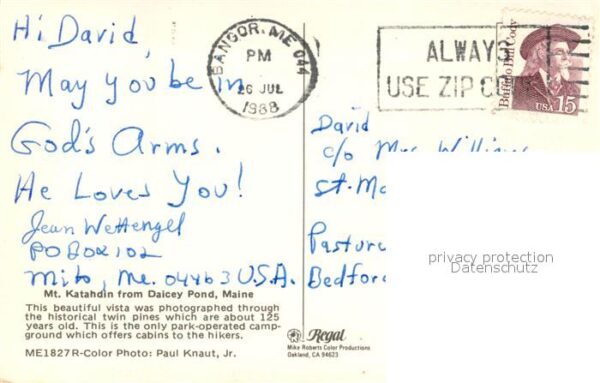 Hi David,
May you be in
God's Arms.
He Loves You!
Jean Wettengel
PO BOX 102
Milo, Me. 04463 U.S.A.
Mt. Katahdin from Daicey Pond, Maine
This beautiful vista was photographed through
the historical twin pines which are about 125
years old. This is the only park-operated camp-
ground which offers cabins to the hikers.
ME1827R-Color Photo: Paul Knaut, Jr.
BANGOR, ME 044
PM
26 JUL
1988
ALWAYS
USE ZIP
Buffalo Bill Cody
USA 15
David
c/o Mrs
St.
Pasture
Bedford
privacy protection
Datenschutz
Regal
Mike Roberts Color Productions
Oakland, CA 94623